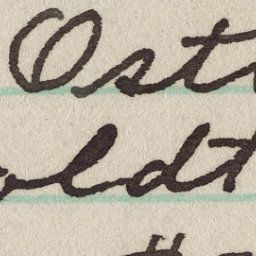 Ost
oldt